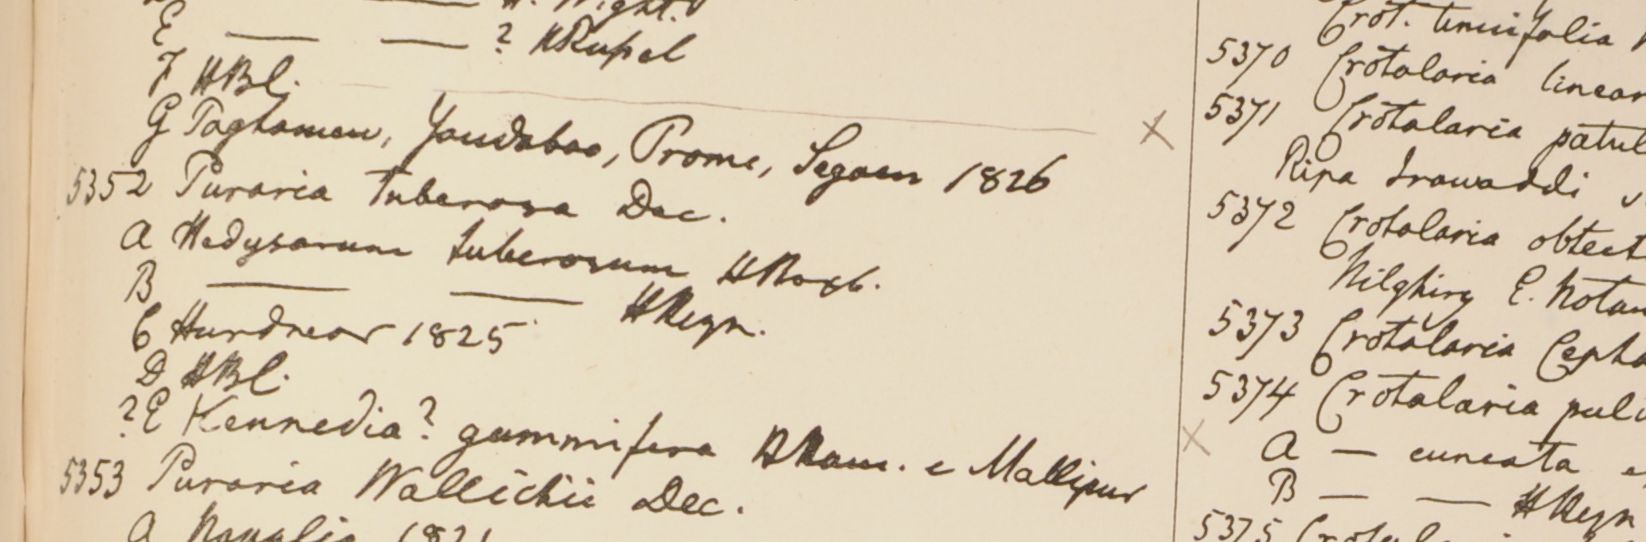 E — — ? HRupel
F HBl.
G Pagkamen, Yandaboo, Prome, Segaen 1826
5352 Puraria tuberosa Dec.
A Hedysarum tuberosum HRoxb.
B — — HHeyn.
C Hurdwar 1825
D HBl.
?E Kennedia? gummifera HHam. e Mallipur
5353 Puraria Wallichii Dec.
A Napalia 1821
Crot. tenuifolia
5370 Crotalaria linear
5371 Crotalaria patul
Ripa Irawaddi
5372 Crotalaria obtect
Nilghiry E. Noton
5373 Crotalaria Cepha
5374 Crotalaria pulc
A — cuneata e
B — — HHeyn
5375